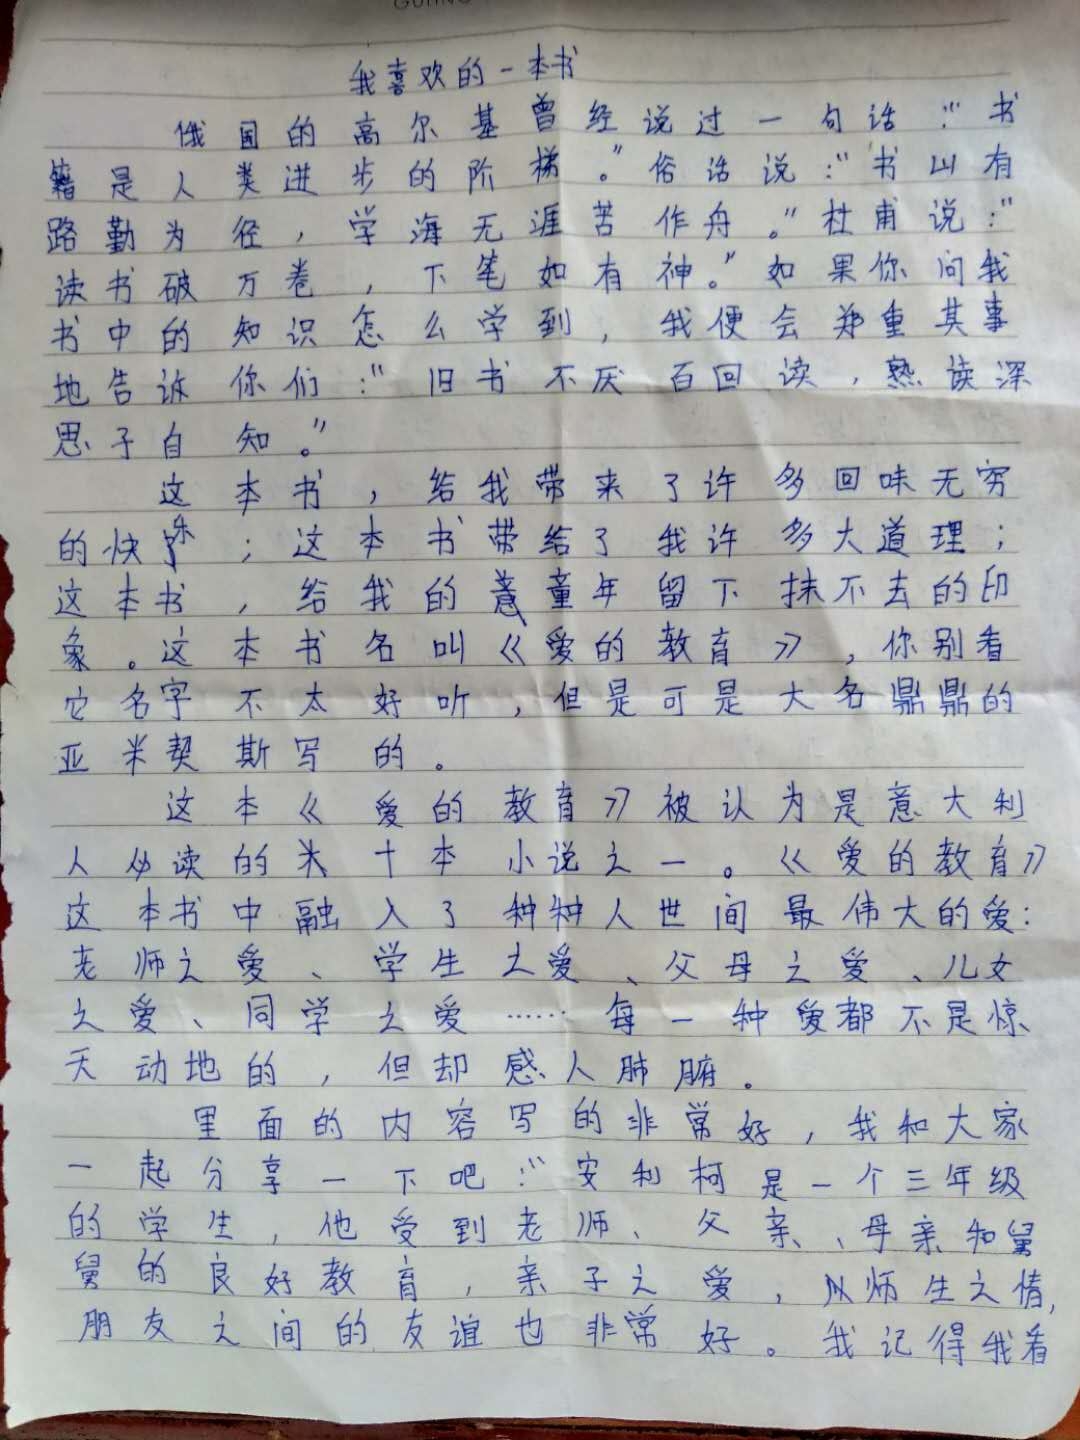 我喜欢的一本书
俄国的高尔基曾经说过一句话:“书
籍是人类进步的阶梯。”俗话说:“书山有
路勤为径,学海无涯苦作舟。”杜甫说:“
读书破万卷,下笔如有神。”如果你问我
书中的知识怎么学到,我便会郑重其事
地告诉你们:“旧书不厌百回读,熟读深
思子自知。”
这本书,给我带来了许多回味无穷
的快乐;这本书带给了我许多大道理;
这本书,给我的童年留下抹不去的印
象。这本书名叫《爱的教育》,你别看
它名字不太好听,但是可是大名鼎鼎的
亚米契斯写的。
这本《爱的教育》被认为是意大利
人必读的十本小说之一。《爱的教育》
这本书中融入了种种人世间最伟大的爱:
老师之爱、学生之爱、父母之爱、儿女
之爱、同学之爱……每一种爱都不是惊
天动地的,但却感人肺腑。
里面的内容写的非常好,我和大家
一起分享一下吧:“安利柯是一个三年级
的学生,他受到老师、父亲、母亲和舅
舅的良好教育,亲子之爱,从师生之情,
朋友之间的友谊也非常好。我记得我看